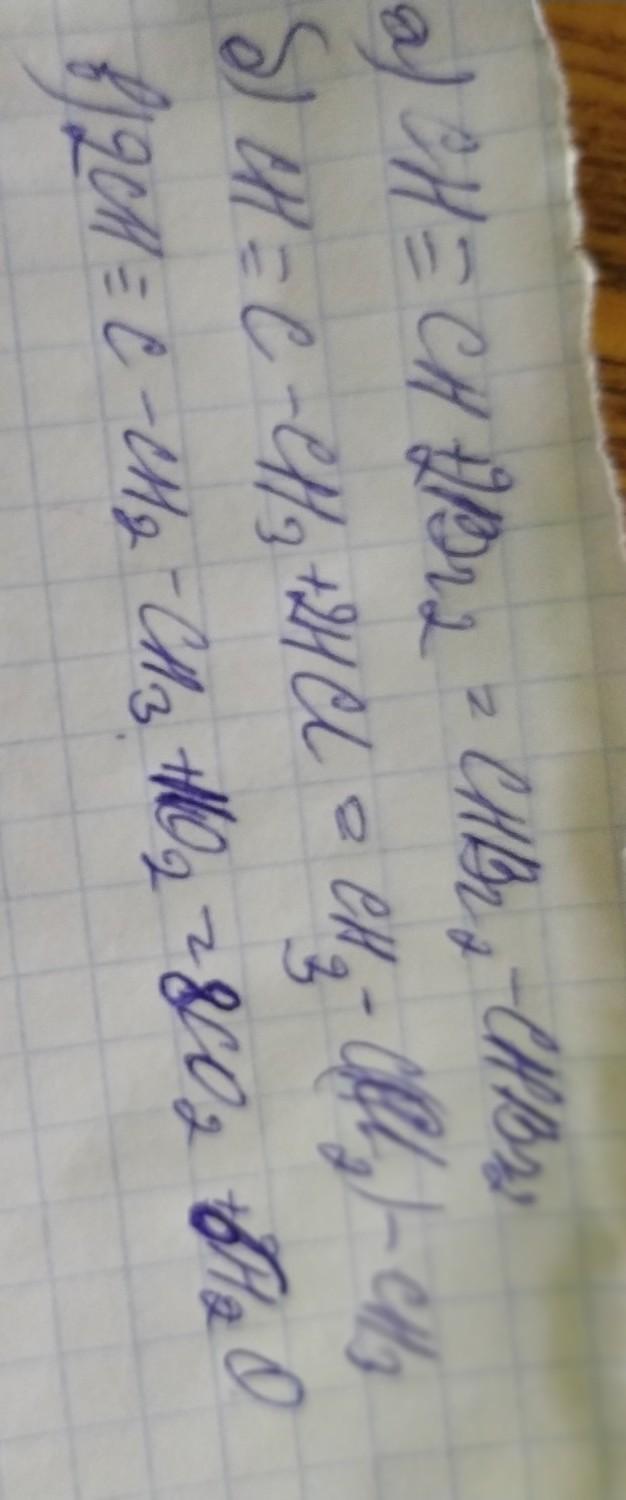 а) CH≡CH+2Br2 = CHBr2-CHBr2
б) CH≡C-CH3+2HCl = CH3-C(Cl2)-CH3
в) 2CH≡C-CH2-CH3+11O2=8CO2+6H2O